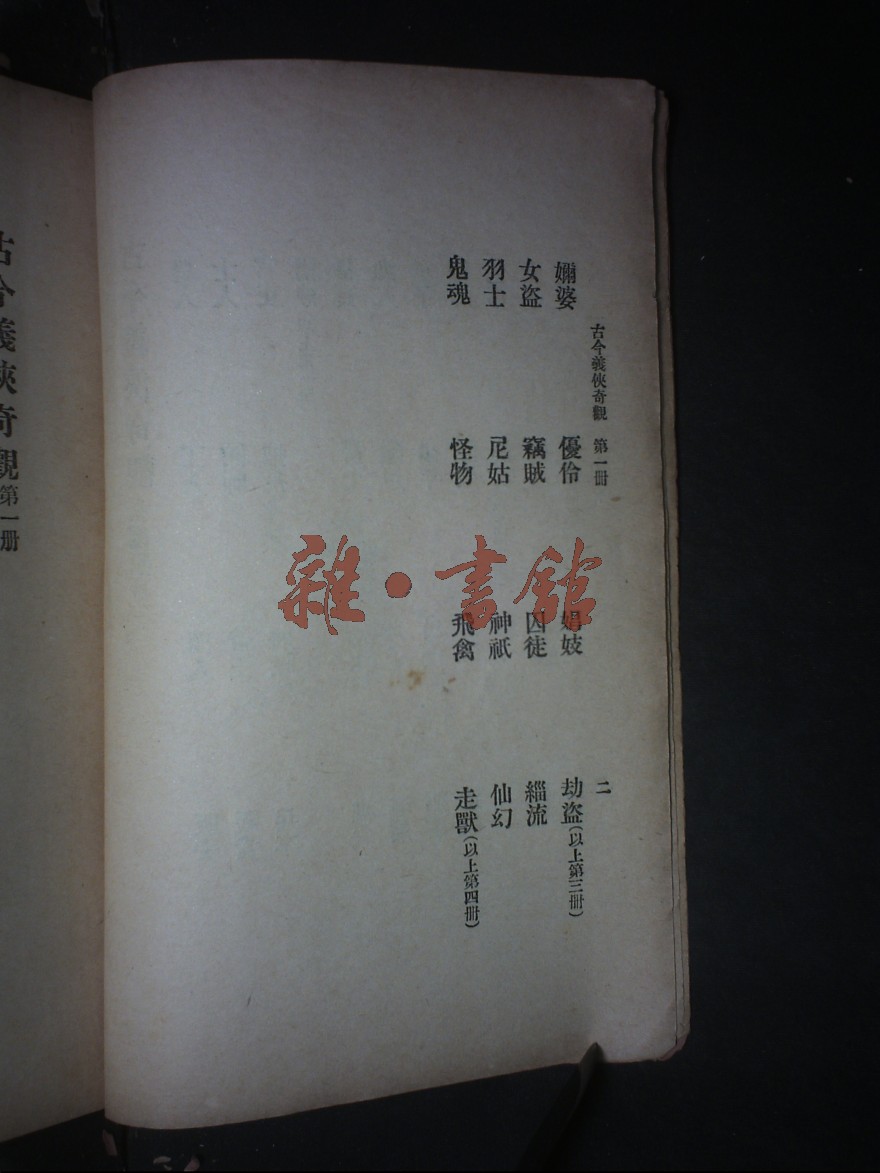 古今義俠奇觀 第一冊 二
嬭婆 優伶 娼妓 劫盜(以上第三冊)
女盜 竊賊 囚徒 緇流
羽士 尼姑 神祇 仙幻
鬼魂 怪物 飛禽 走獸(以上第四冊)
古今義俠奇觀 第一册
雜·書館